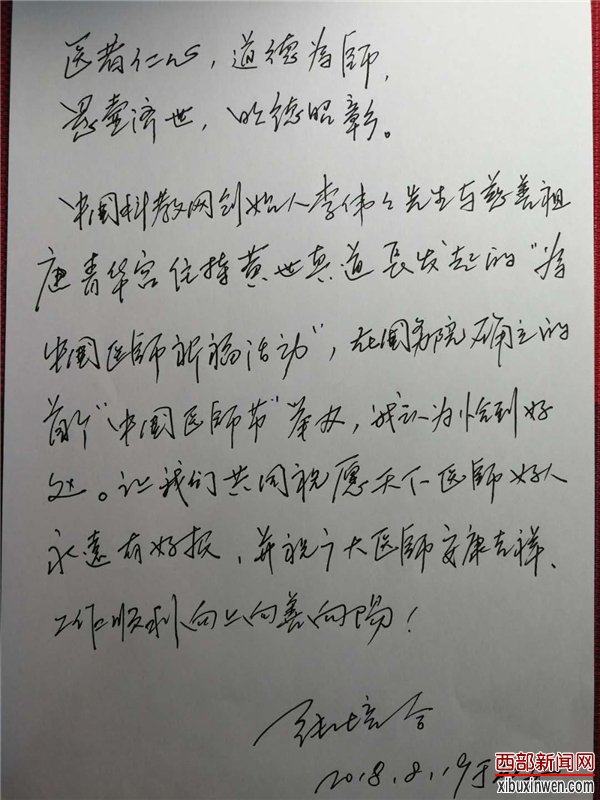 医者仁心，道德為師，
悬壶济世，功德昭彰。
中国科教网创始人李伟々先生与慈善祖
庙青华宫住持黄世真道长发起的“為
中国医师祈福活动”，在国务院确立的
首个“中国医师节”举办，我认为恰到好
处。让我们共同祝愿天下医師好人
永遠有好报，并祝广大医師安康吉祥、
工作順利向上向善向陽！
张培合
2018.8.19于
西部新闻网
xibuxinwen.com